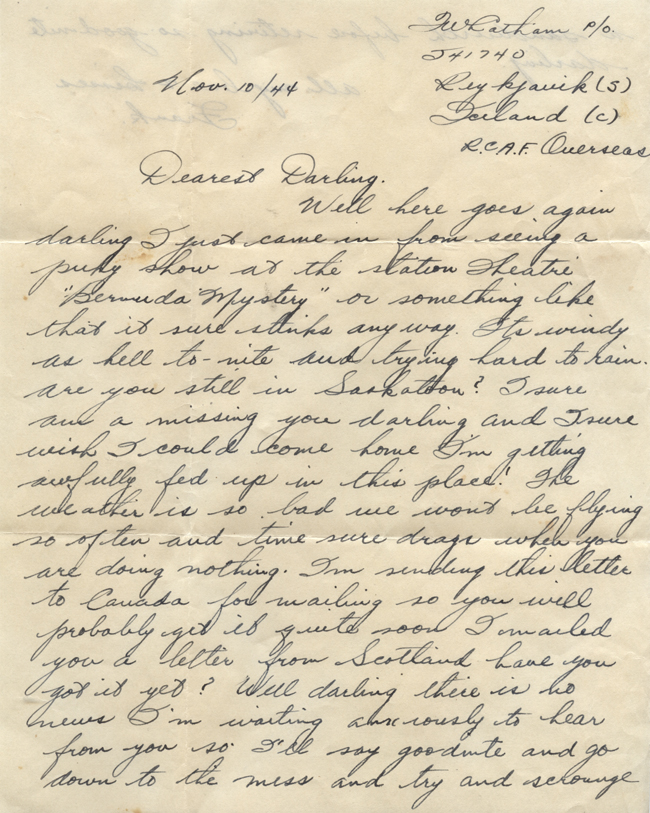 F W Latham P/O.
J41740
Nov. 10/44
Reykjavik (S)
Iceland (C)
R.C.A.F. Overseas
Dearest Darling.
Well here goes again
darling I just came in from seeing a
puky show at the station Theatre
"Bermuda Mystery" or something like
that it sure stinks any way. Its windy
as hell to-nite and trying hard to rain.
are you still in Saskatoon? I sure
am a missing you darling and I sure
wish I could come home I'm getting
awfully fed up in this place! The
weather is so bad we wont be flying
so often and time sure drags when you
are doing nothing. I'm sending this letter
to Canada for mailing so you will
probably get it quite soon I mailed
you a letter from Scotland have you
got it yet? Well darling there is no
news I'm waiting anxiously to hear
from you so I'll say goodnite and go
down to the mess and try and scrounge